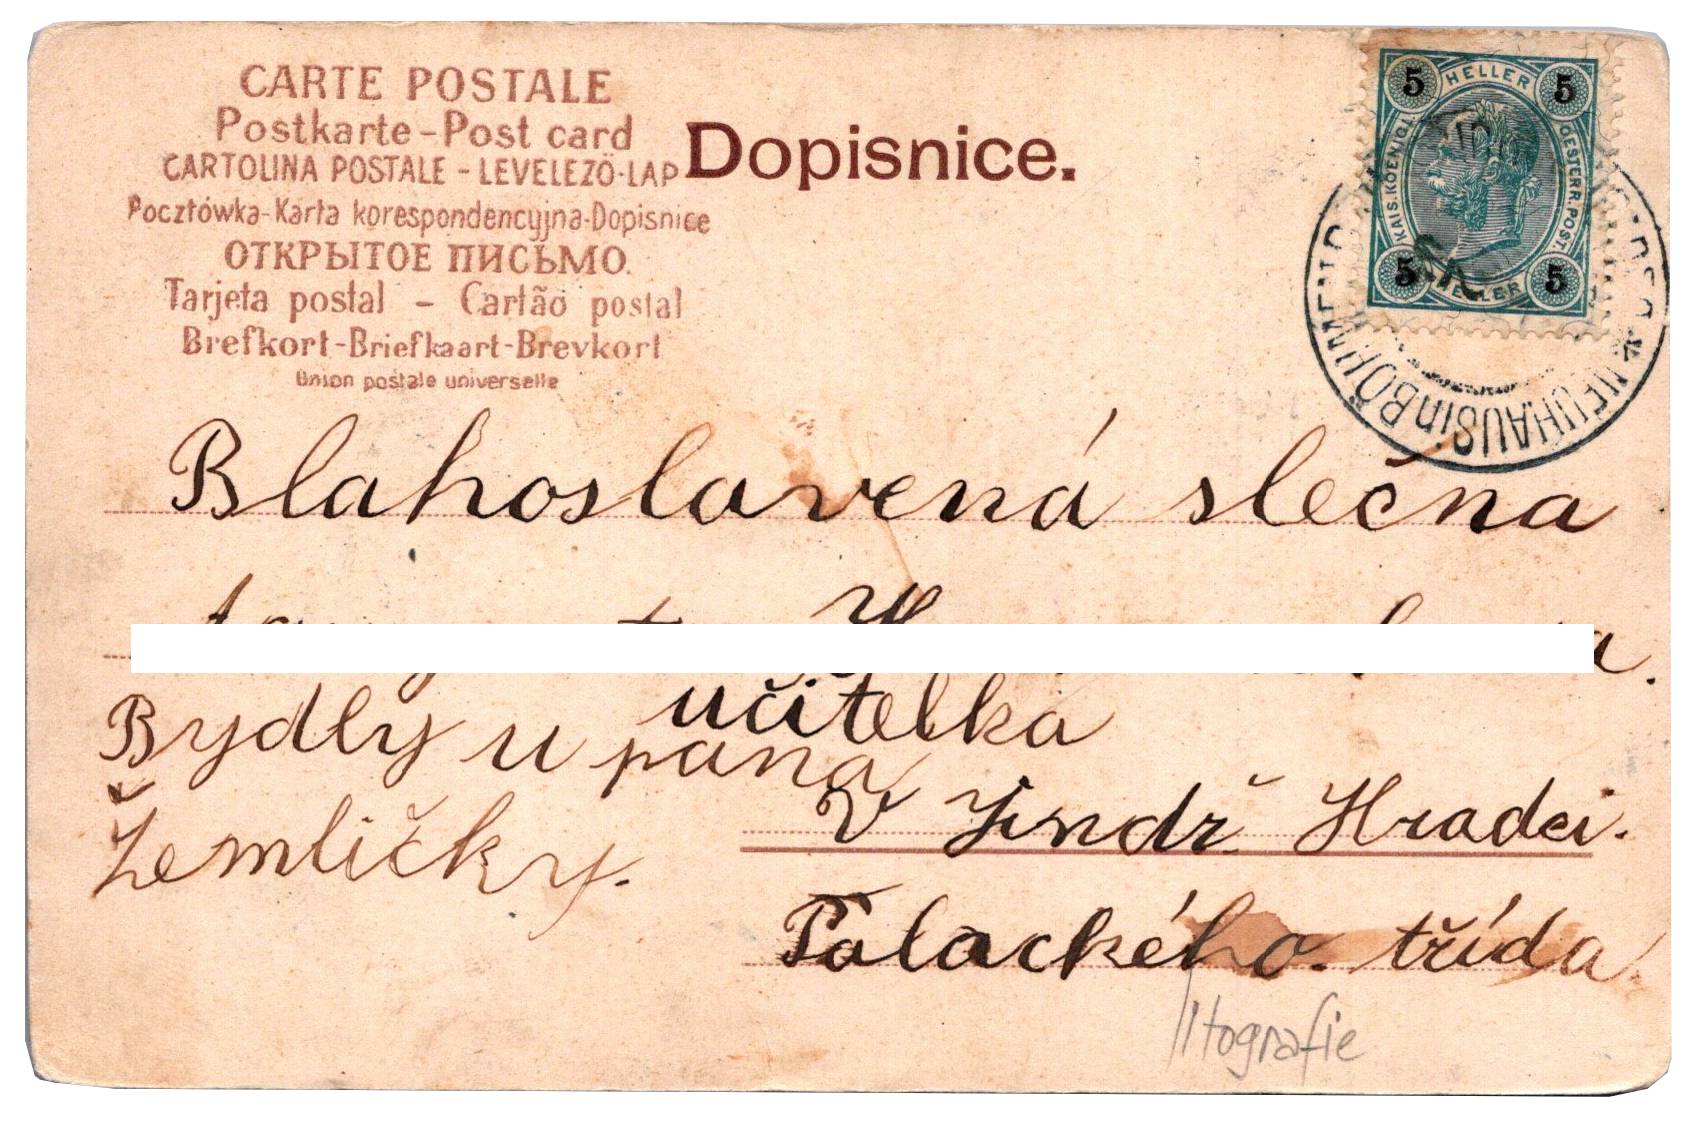 CARTE POSTALE
Postkarte-Post card
CARTOLINA POSTALE - LEVELEZÖ-LAP
Pocztówka-Karta korespondencyjna-Dopisnice
ОТКРЫТОЕ ПИСЬМО.
Tarjeta postal - Cartão postal
Brefkort-Briefkaart-Brevkort
Union postale universelle
Dopisnice.
5 HELLER 5
KAIS. KOENIGL.
OESTERR. POST.
5 HELLER 5
NEUHAUS in BÖHMEN
Blahoslavená slečna
učitelka
Bydly u pana
Žemličky.
V Jindř. Hradci.
Palackého. třída.
litografie